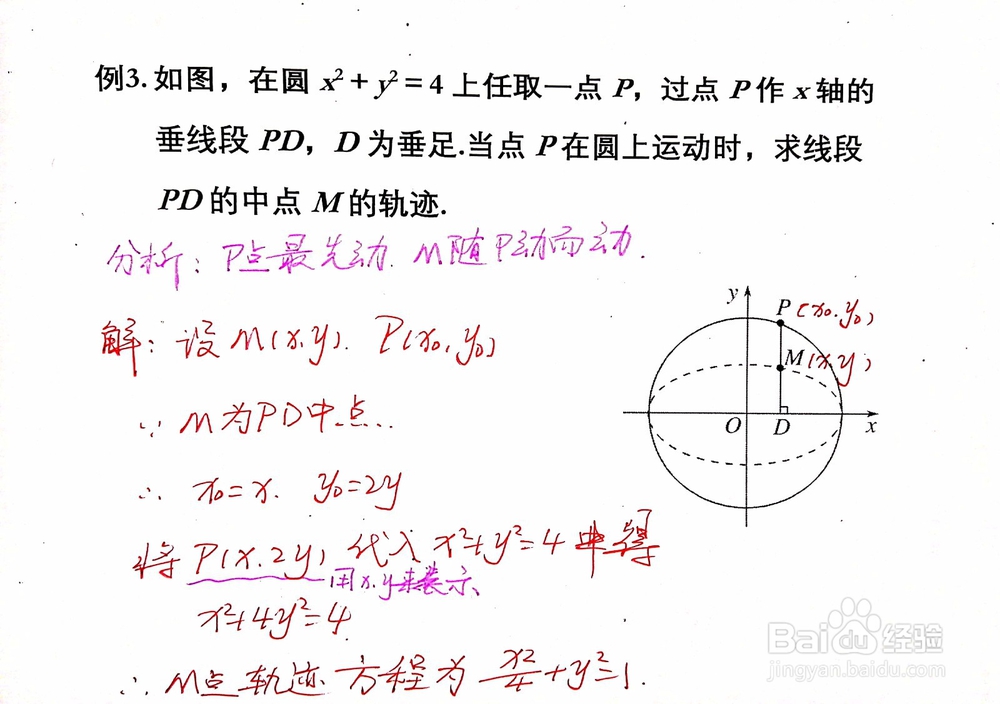 例3. 如图，在圆 x²+y²=4 上任取一点 P，过点 P 作 x 轴的
垂线段 PD，D 为垂足.当点 P 在圆上运动时，求线段
PD 的中点 M 的轨迹.
分析：P点最先动. M随P动而动.
解：设M(x.y). P(x₀, y₀)
∵ M为PD中点.
∴ x₀=x. y₀=2y
将P(x.2y)代入x²+y²=4中得
用x.y来表示
x²+4y²=4
∴ M点轨迹方程为 x²/4+y²=1.
y
P (x₀.y₀)
M(x.y)
O
D
x
Baidu经验
jingyan.baidu.com